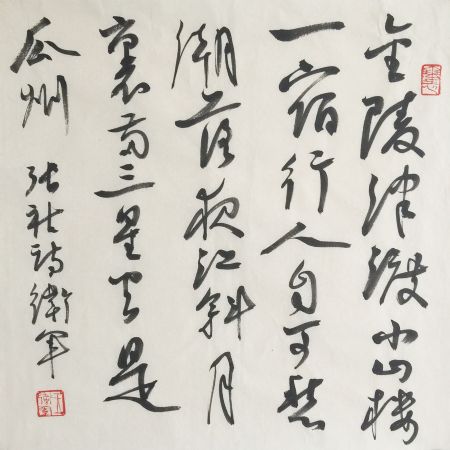 金陵津渡小山楼
一宿行人自可愁
潮落夜江斜月
裏两三星火是
瓜州 张祜诗衛军